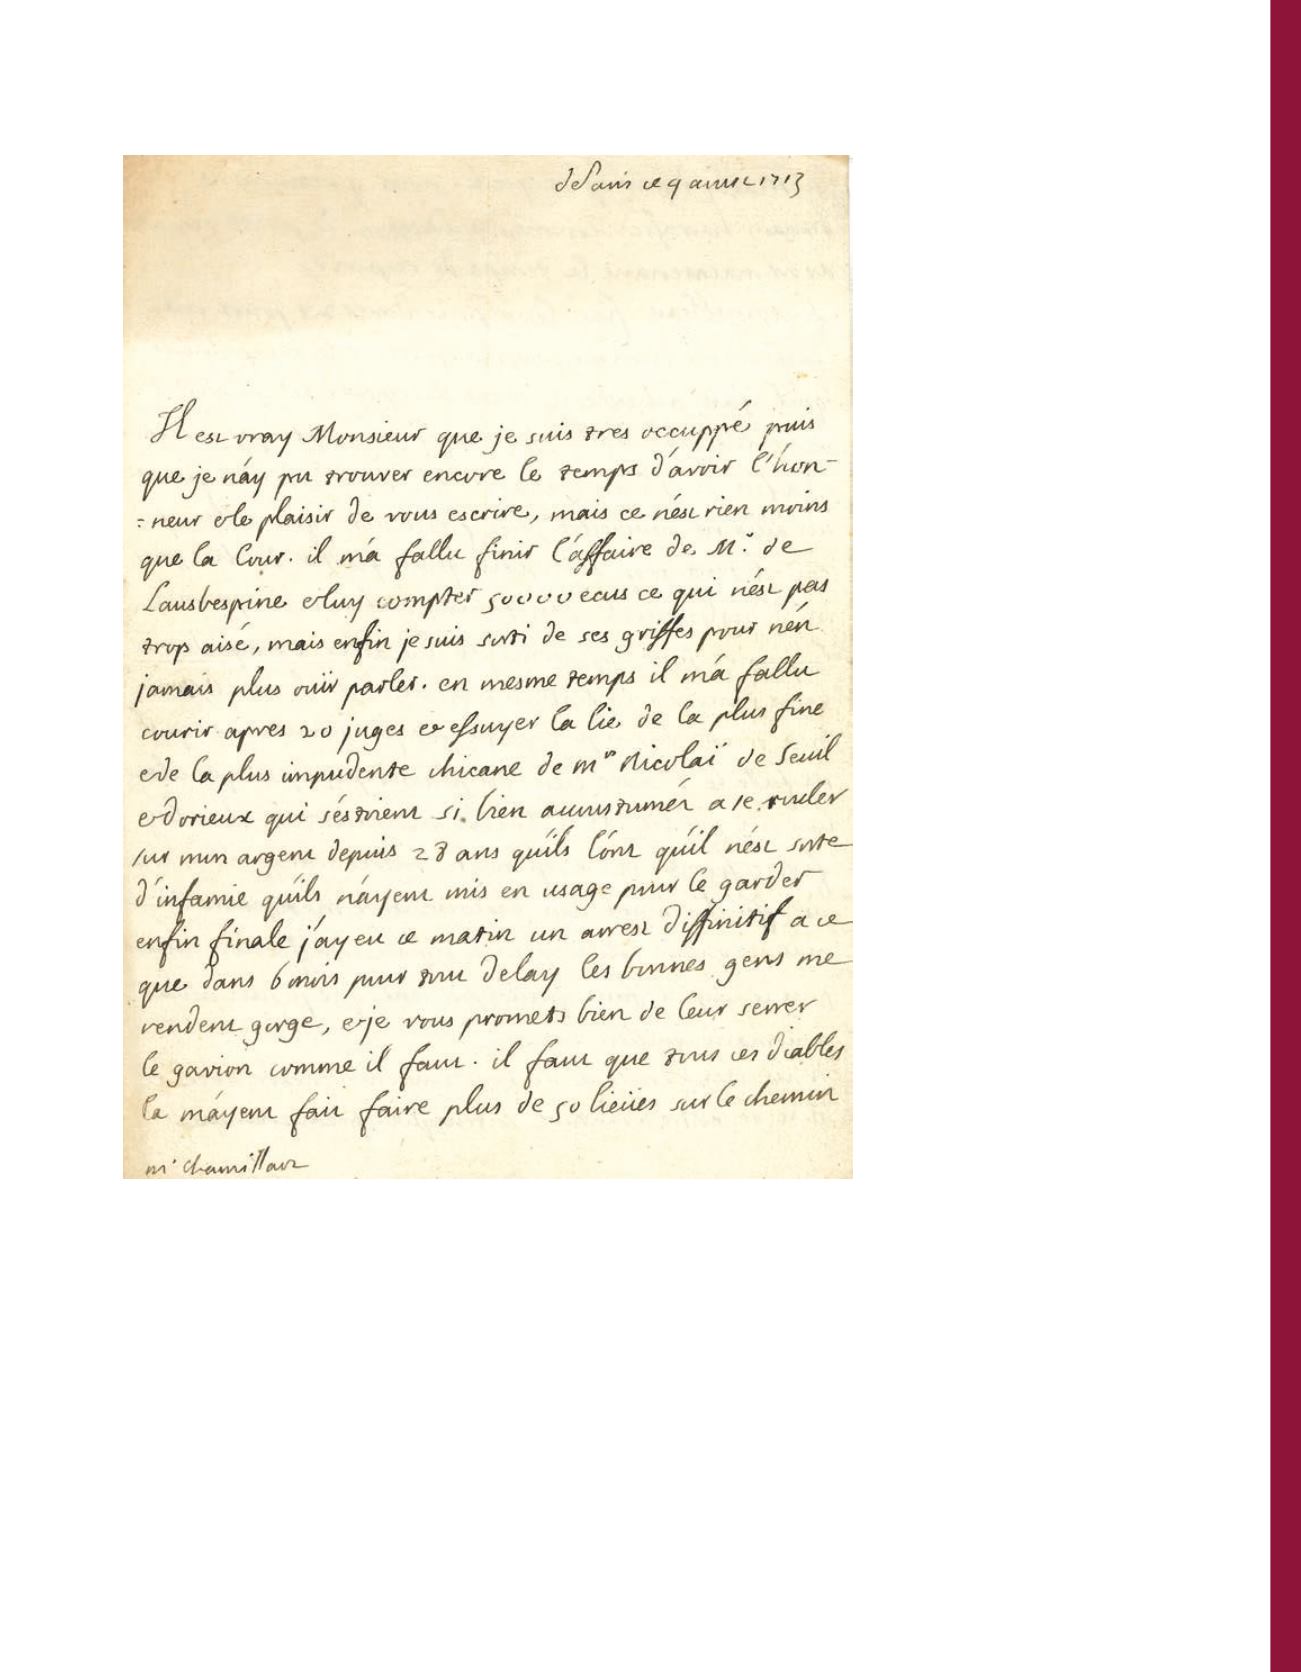 de Paris ce 9 avril 1713
Il est vray Monsieur que je suis tres occuppé puis
que je n'áy pu trouver encore le temps d'ávoir l'hon-
=neur et le plaisir de vous escrire, mais ce n'ést rien moins
que la Cour. il m'a fallu finir l'áffaire de Mr. de
Lausbespine et luy compter 50000 ecus ce qui n'ést pas
trop aisé, mais enfin je suis sorti de ses griffes pour n'én
jamais plus ouïr parler. en mesme temps il m'á fallu
courir apres 20 juges et essuyer la lie de la plus fine
et de la plus impudente chicane de mrs Nicolaï de Seuil
et dorieux qui s'éstoient si bien accoustuméz a se
sur mon argent depuis 28 ans qu'ils l'ónt qu'il n'ést sorte
d'infamie qu'ils n'áyent mis en usage pour le garder
enfin finale j'ay eu ce matin un arrest diffinitif a ce
que dans 6 mois pour tout delay les bonnes gens me
rendent gorge, et je vous promets bien de leur serrer
le gavion comme il faut. il faut que tous ces diables
la m'áyent fait faire plus de 50 lieües sur le chemin
mr chamillart